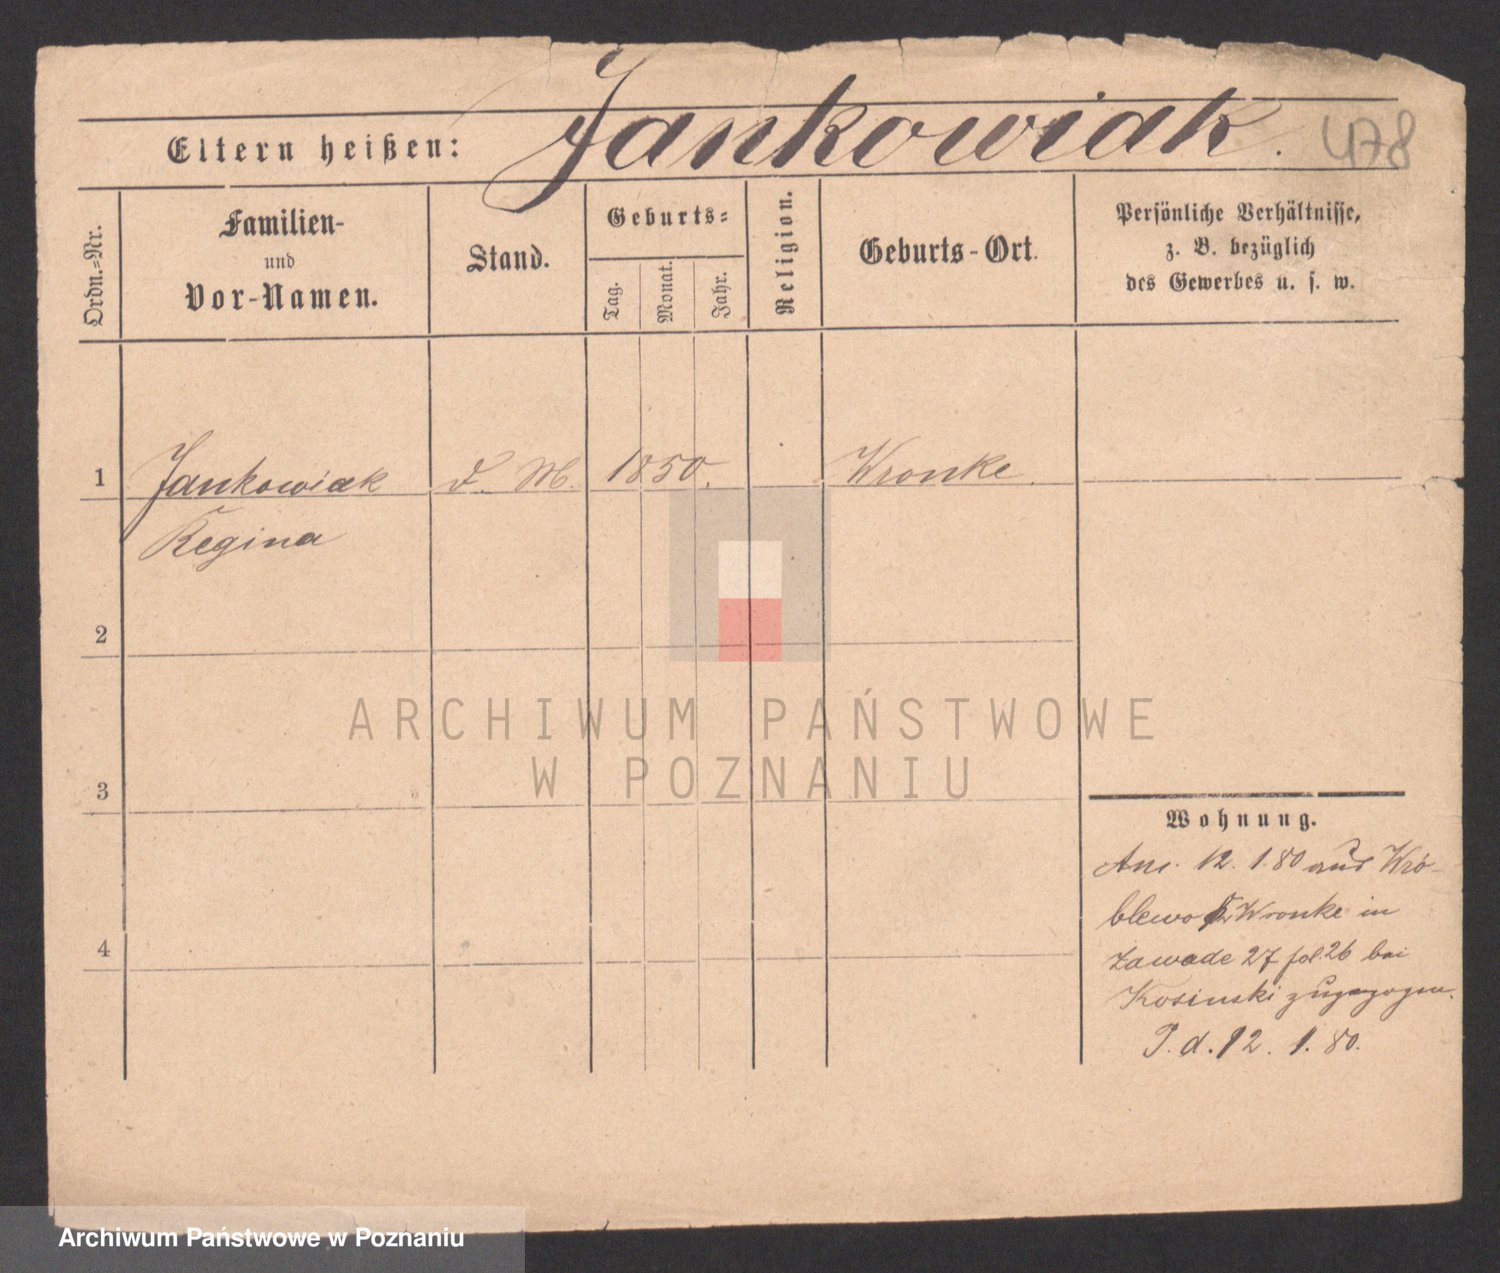 Eltern heißen: Jankowiak. 478
Ordn.=Nr.
Familien-
und
Vor-Namen.
Stand.
Geburts=
Tag.
Monat.
Jahr.
Religion.
Geburts-Ort.
Persönliche Verhältnisse,
z. B. bezüglich
des Gewerbes u. s. w.
1 Jankowiak D. M. 1850. Wronke.
Regina
2
3
4
Wohnung.
Anz. 12. 1. 80 aus Wró-
blewo Wronke in
Zawade 27 fol. 26 bei
Kosinski zugezogen.
P. d. 12. 1. 80.
ARCHIWUM PAŃSTWOWE
W POZNANIU
Archiwum Państwowe w Poznaniu